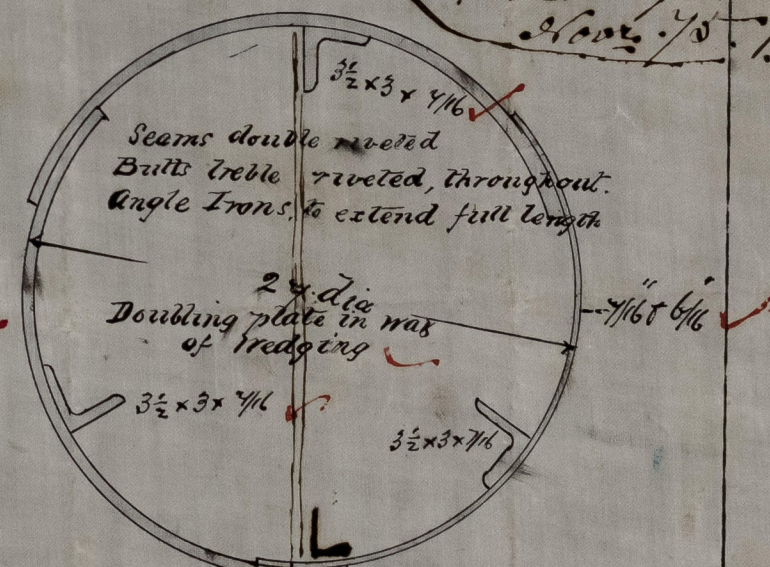 Novr. 75.
3½ x 3 x 7/16
Seams double riveted
Butts treble riveted, throughout.
Angle Irons, to extend full length
dia
Doubling plate in way
of Wedging
7/16" & 6/16"
3½ x 3 x 7/16
3½ x 3 x 7/16
L